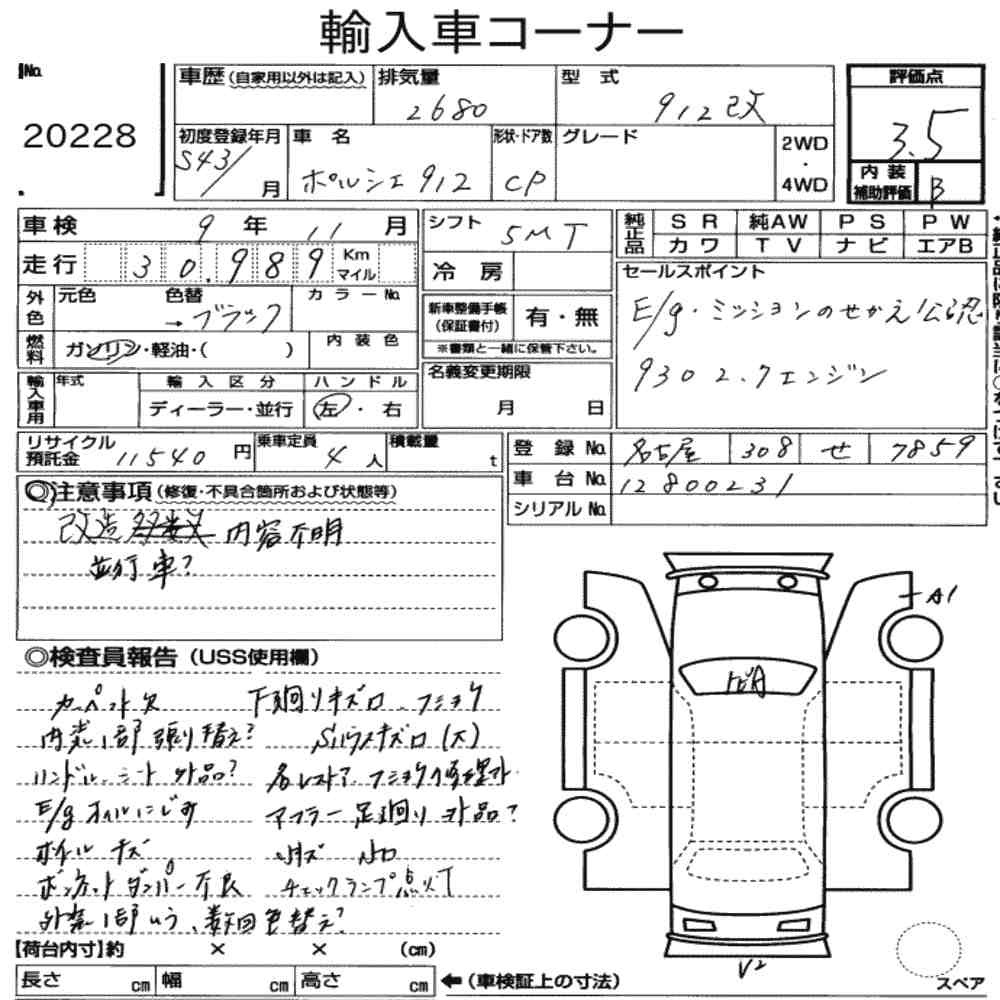 輸入車コーナー
No. 20228
車歴 (自家用以外は記入) 排気量 2680 型式 912改 評価点 3.5
初度登録年月 S43/ 月 車名 ポルシェ 912 形状・ドア数 CP グレード 2WD・4WD 内装補助評価 B
車検 9年 11月 シフト 5MT 純正品 SR 純AW PS PW
カワ TV ナビ エアB
走行 30.989 Km マイル 冷房 セールスポイント
外色 元色 色替 →ブラック カラーNo. 新車整備手帳(保証書付) 有・無 E/g・ミッションのせかえ公認
燃料 ガソリン・軽油・( ) 内装色 ※書類と一緒に保管下さい。 930 2.7エンジン
輸入車用 年式 輸入区分 ハンドル 名義変更期限
ディーラー・並行 左・右 月 日
リサイクル預託金 11540円 乗車定員 4人 積載量 t 登録No. 名古屋 308 せ 7859
車台No. 12800231
シリアルNo.
◎注意事項(修復・不具合箇所および状態等)
改造 内容不明
並行車?
A1
◎検査員報告(USS使用欄)
カーペット欠 下廻りキズロ、フショク
内装1部張り替え? Sルーフキズロ(大)
ハンドル、シート外品? 各レストア フショク修理
E/gオイルにじみ マフラー足廻り外品?
ホイルキズ
ボンネットダンパー不良 チェックランプ点灯
外装1部 、数回色替え?
V2
【荷台内寸】約 × × (cm)
長さ cm 幅 cm 高さ cm ←(車検証上の寸法)
スペア